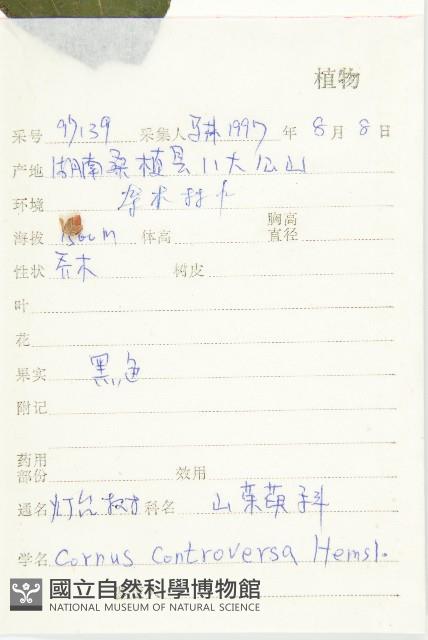 植物
采号 97139 采集人 马林 1997 年 8 月 8 日
产地 湖南桑植县八大公山
环境 杂木林下
胸高
海拔 1500 m 体高 直径
性状 乔木 树皮
叶
花
果实 黑色
附记
药用
部份 效用
通名 灯台树 科名 山茱萸科
学名 Cornus Controversa Hemsl.
國立自然科學博物館
NATIONAL MUSEUM OF NATURAL SCIENCE